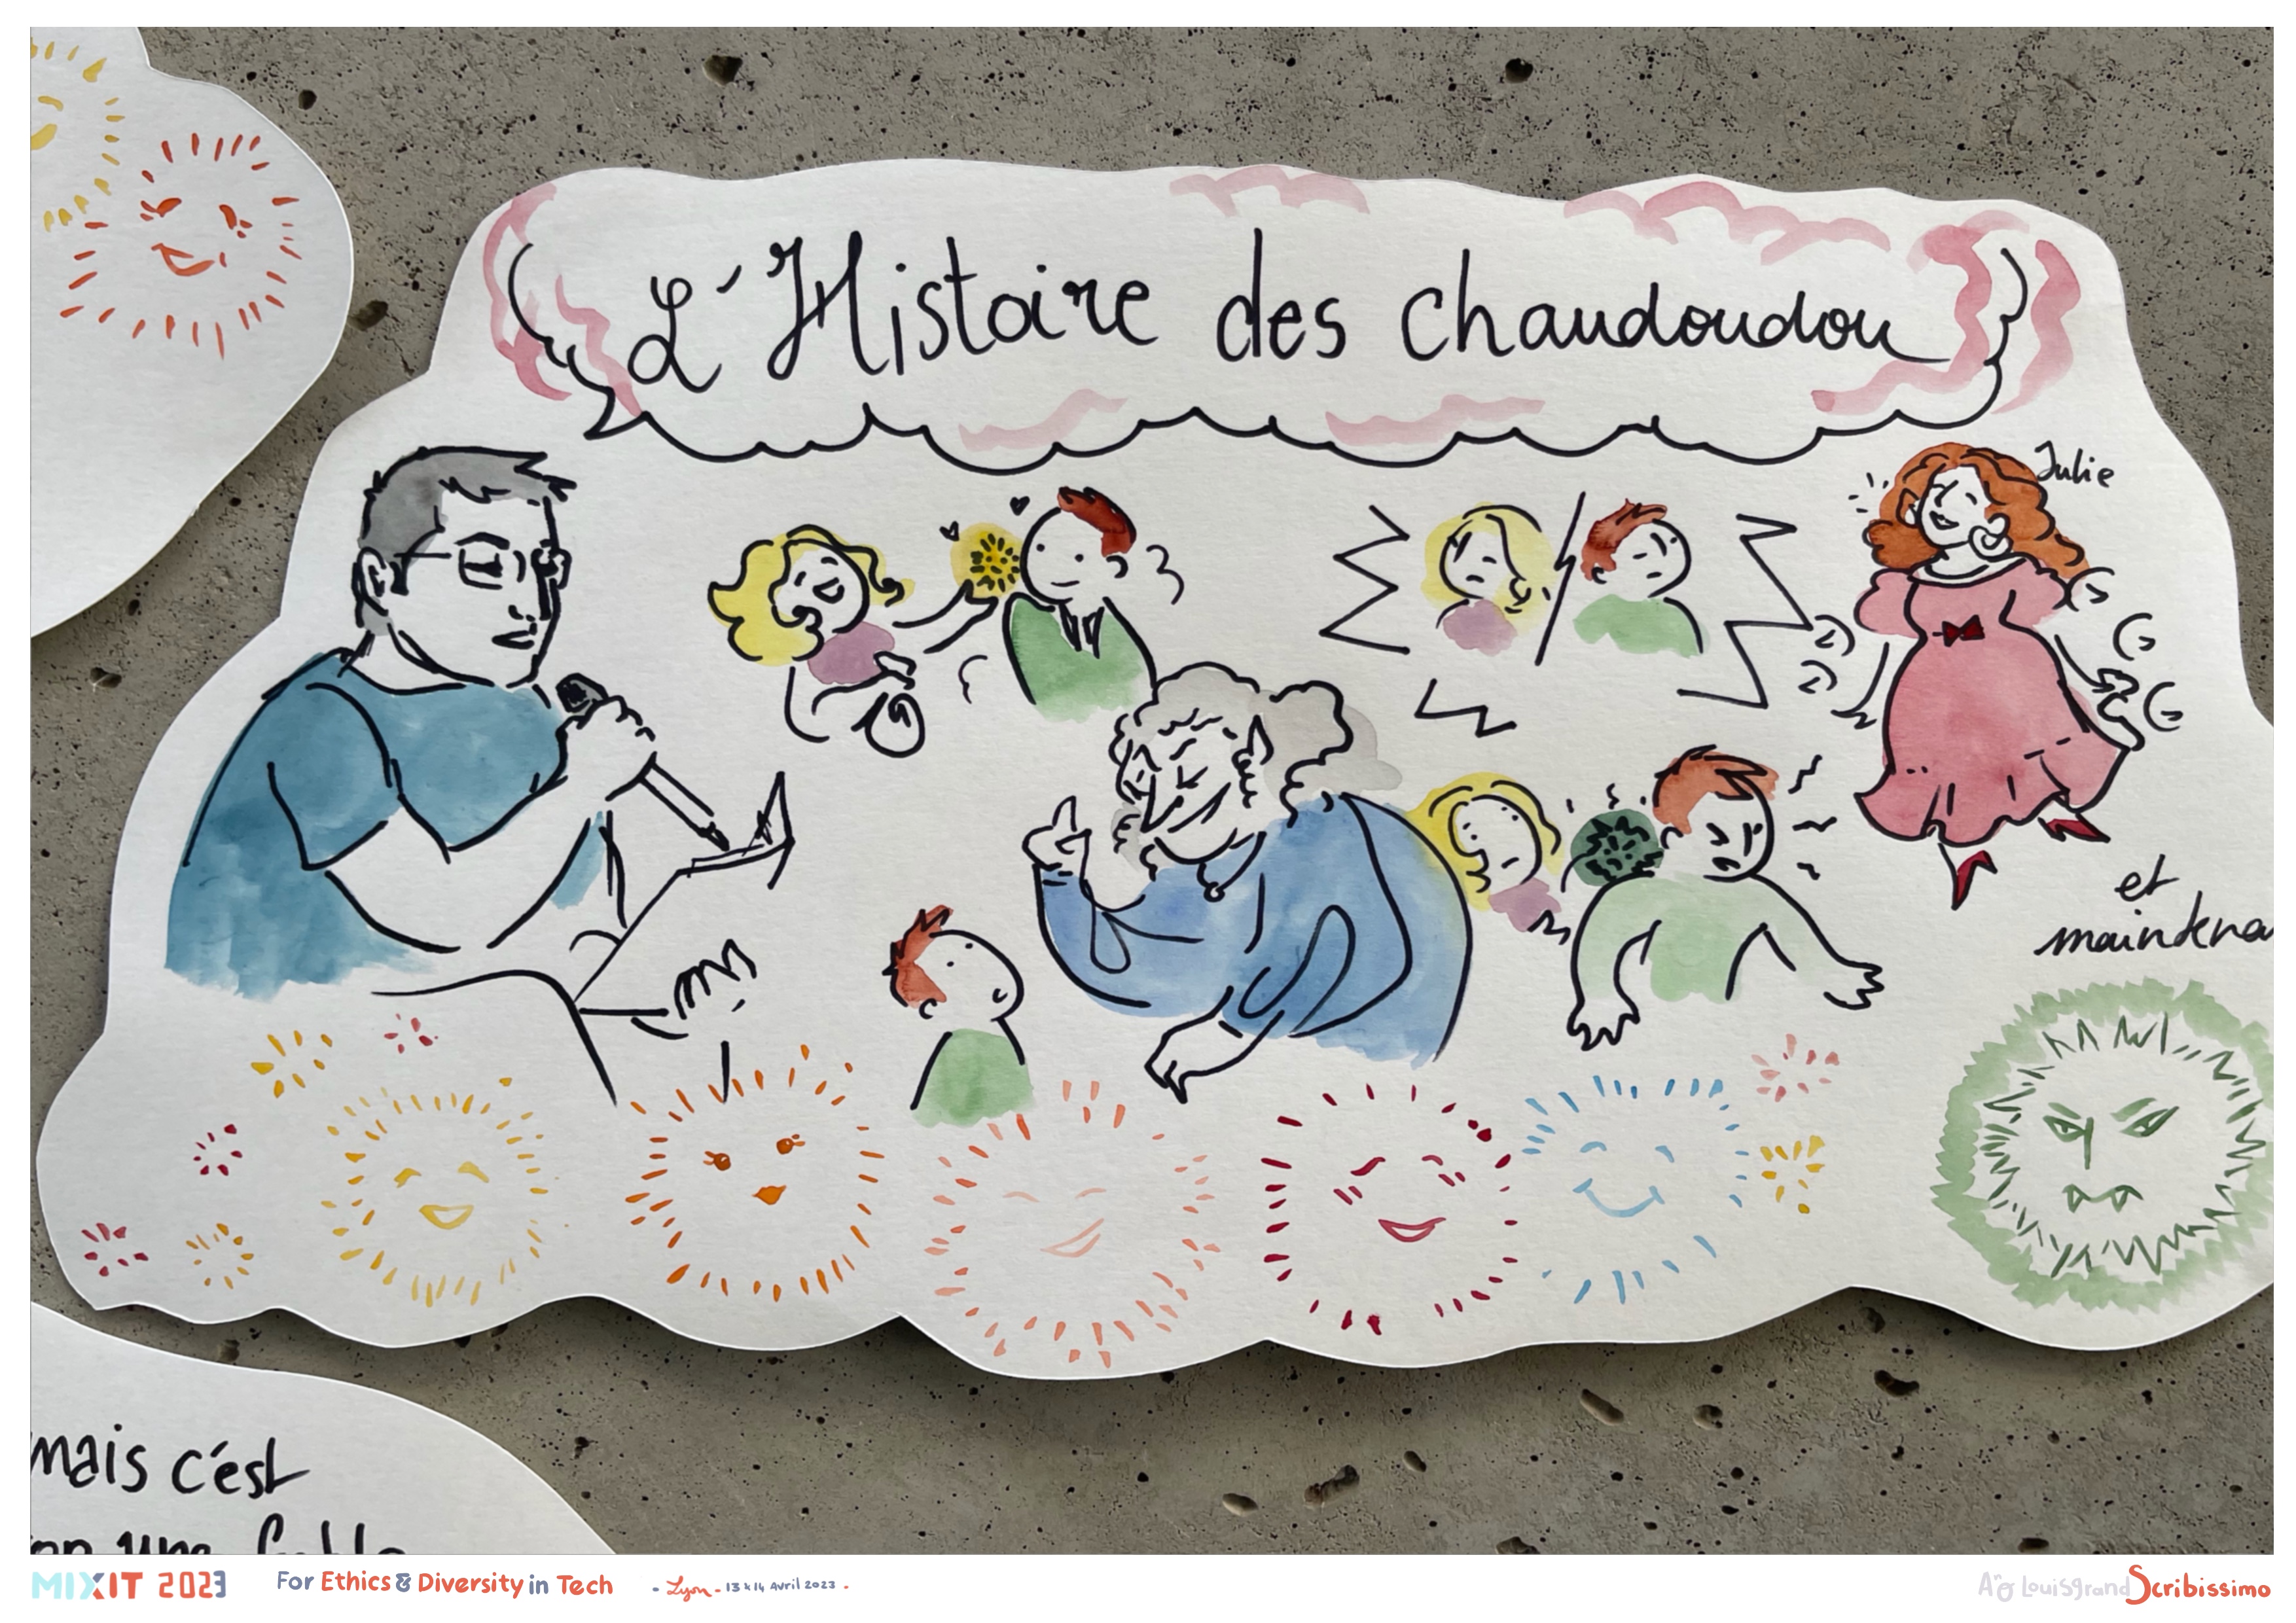 L'Histoire des chaudoudou
Julie
et
maintena
mais c'est
MIXIT 2023
For Ethics & Diversity in Tech
- Lyon - 13 & 14 Avril 2023 -
Louisgrand Scribissimo